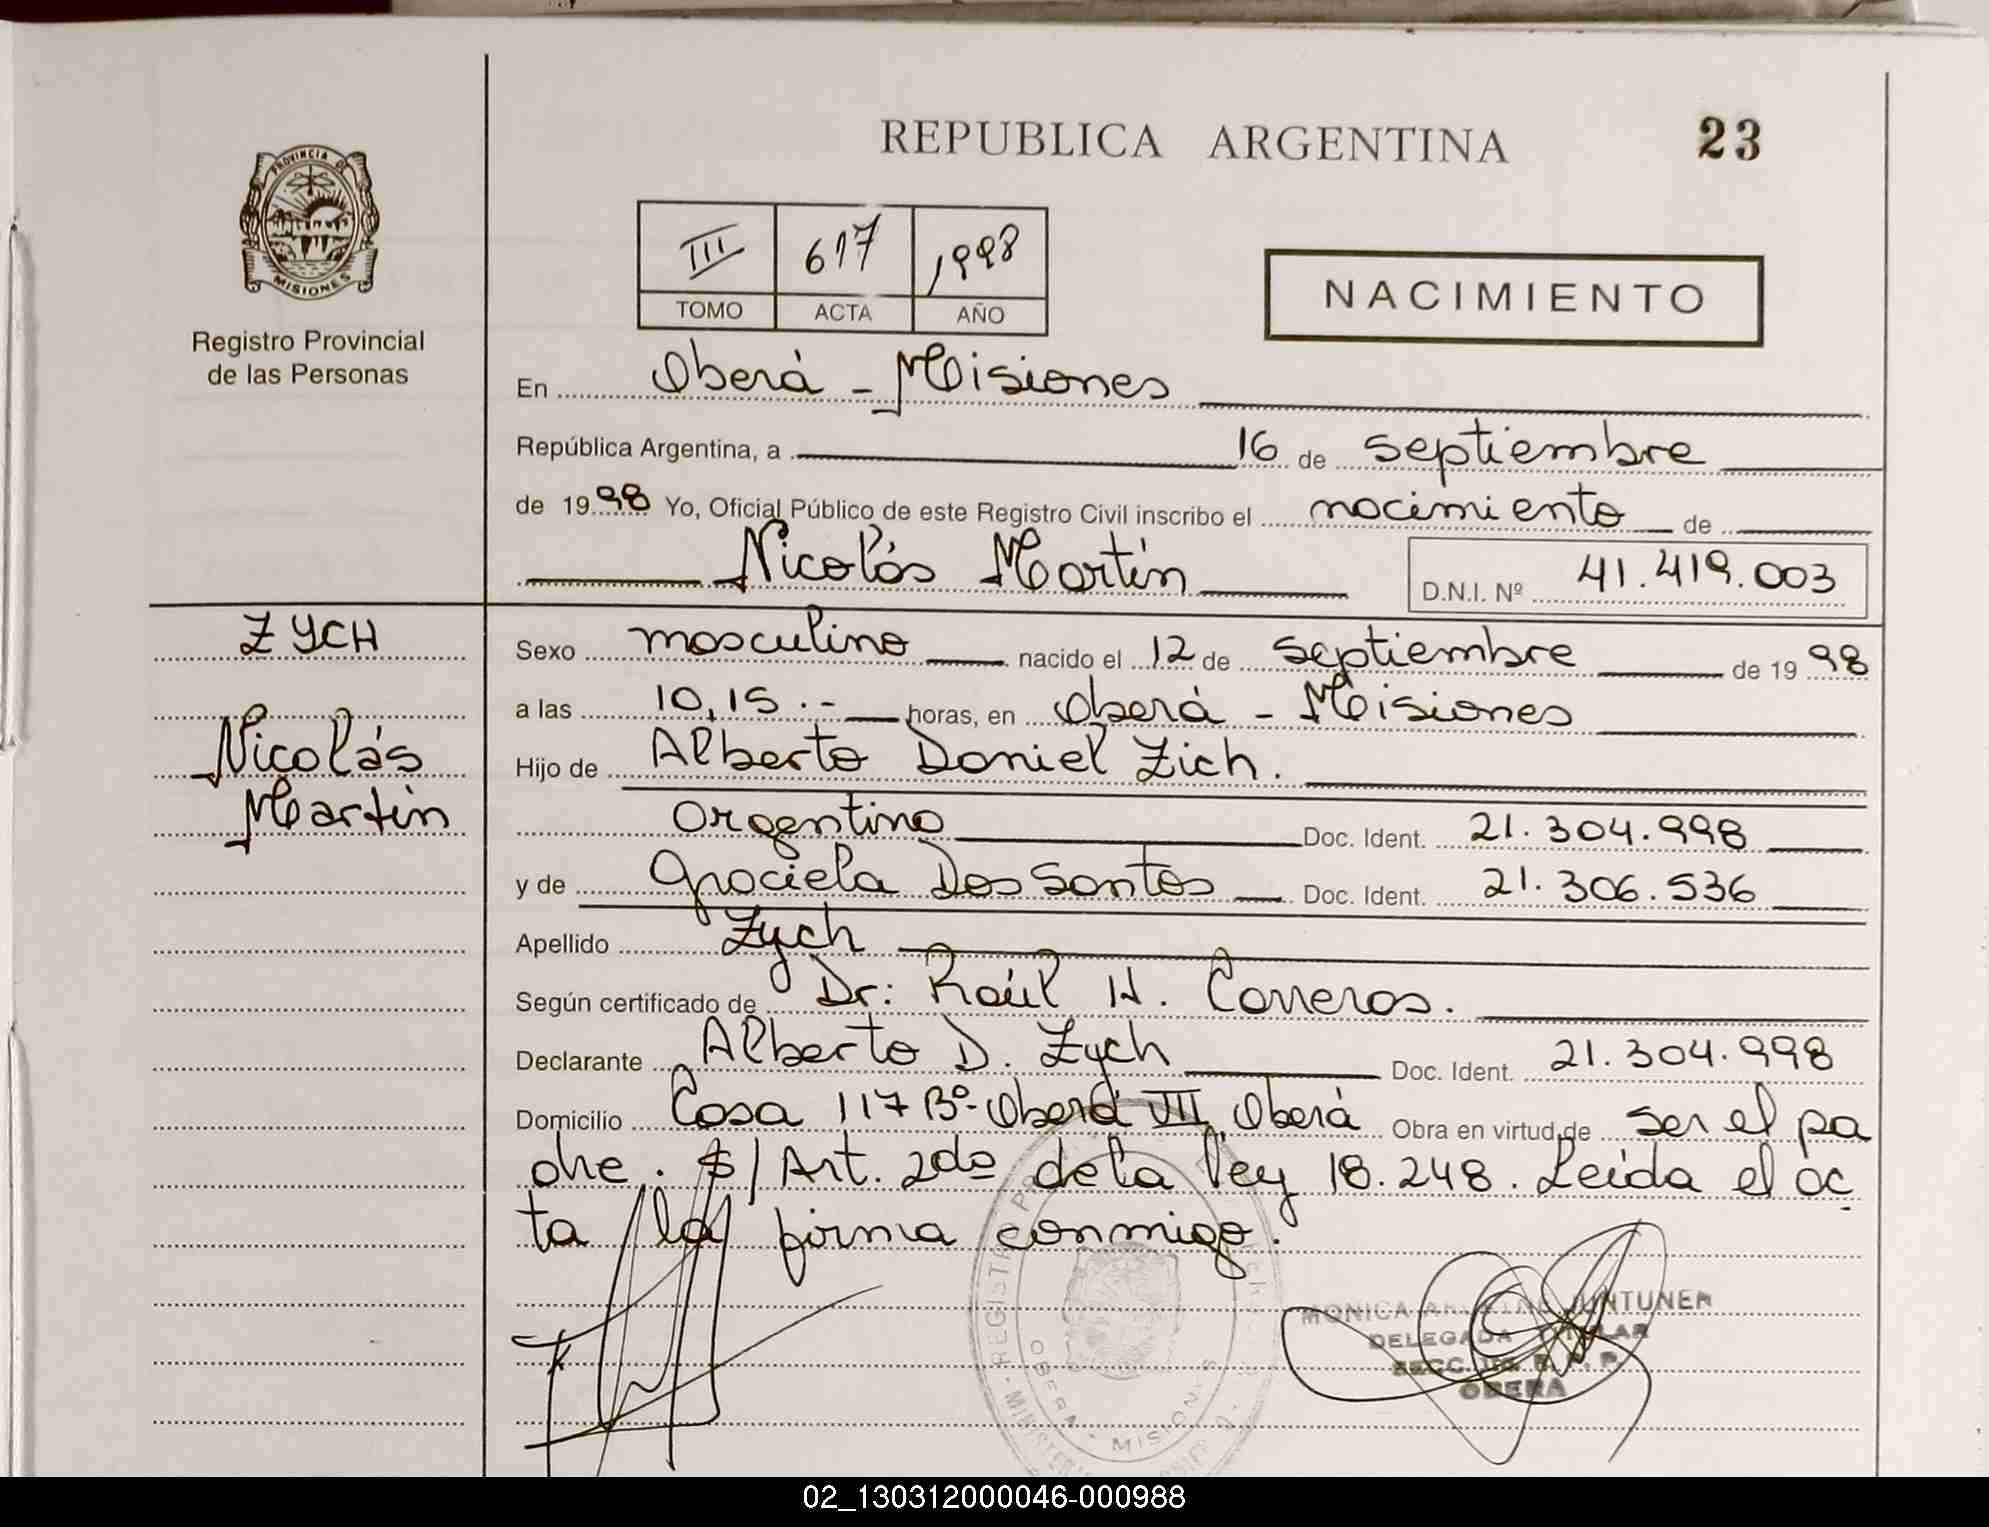 REPUBLICA ARGENTINA
23
PROVINCIA DE
MISIONES
Registro Provincial
de las Personas
III 617 1998
TOMO ACTA AÑO
NACIMIENTO
En Oberá - Misiones
República Argentina, a 16 de septiembre
de 1998 Yo, Oficial Público de este Registro Civil inscribo el nacimiento de
Nicolás Martín
D.N.I. Nº 41.419.003
ZYCH
Nicolás
Martín
Sexo masculino nacido el 12 de septiembre de 1998
a las 10,15.- horas, en Oberá - Misiones
Hijo de Alberto Daniel Zich.
argentino Doc. Ident. 21.304.998
y de Graciela Dos Santos Doc. Ident. 21.306.536
Apellido Zych
Según certificado de Dr: Raúl H. Carreros.
Declarante Alberto D. Zych Doc. Ident. 21.304.998
Domicilio Casa 117 Bº- Oberá VII, Oberá Obra en virtud de ser el pa
dre. S/ Art. 2do de la ley 18.248. Leída el ac
ta la firma conmigo.
REGISTRO
OBERA - MISIONES
MONICA JUNTUNEN
DELEGADA TITULAR
SECC. R. P. P.
OBERA
02_130312000046-000988